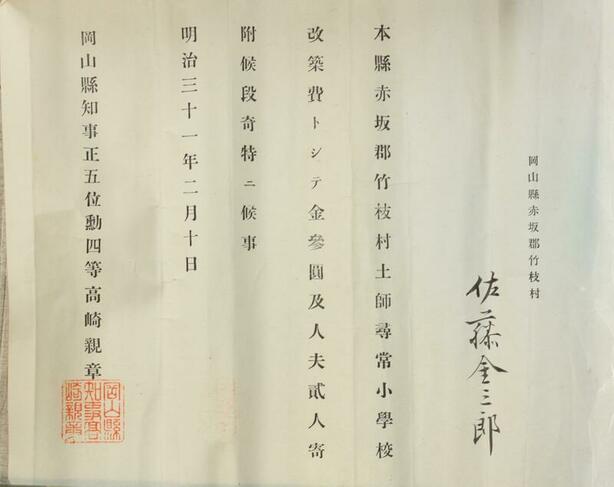 岡山縣赤坂郡竹枝村
佐藤金三郎
本縣赤坂郡竹枝村土師尋常小學校
改築費トシテ金參圓及人夫貳人寄
附候段奇特ニ候事
明治三十一年二月十日
岡山縣知事正五位勳四等高崎親章
岡山縣
知事高
崎親章